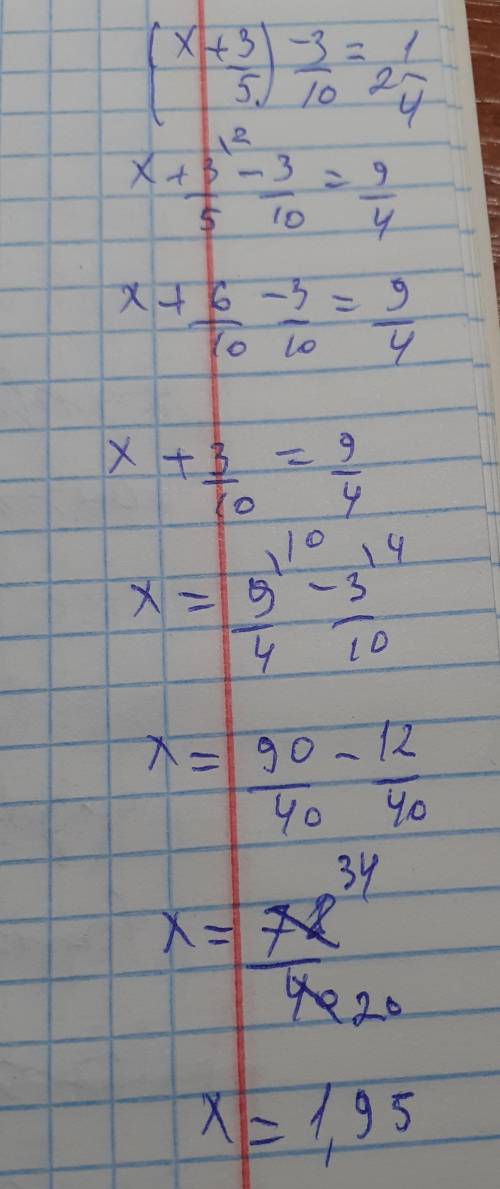 (x + 3/5) - 3/10 = 2 1/4
x + 3/5 ⸌2 - 3/10 = 9/4
x + 6/10 - 3/10 = 9/4
x + 3/10 = 9/4
x = 9/4 ⸌10 - 3/10 ⸌4
x = 90/40 - 12/40
x = 78/40 34/20
x = 1,95